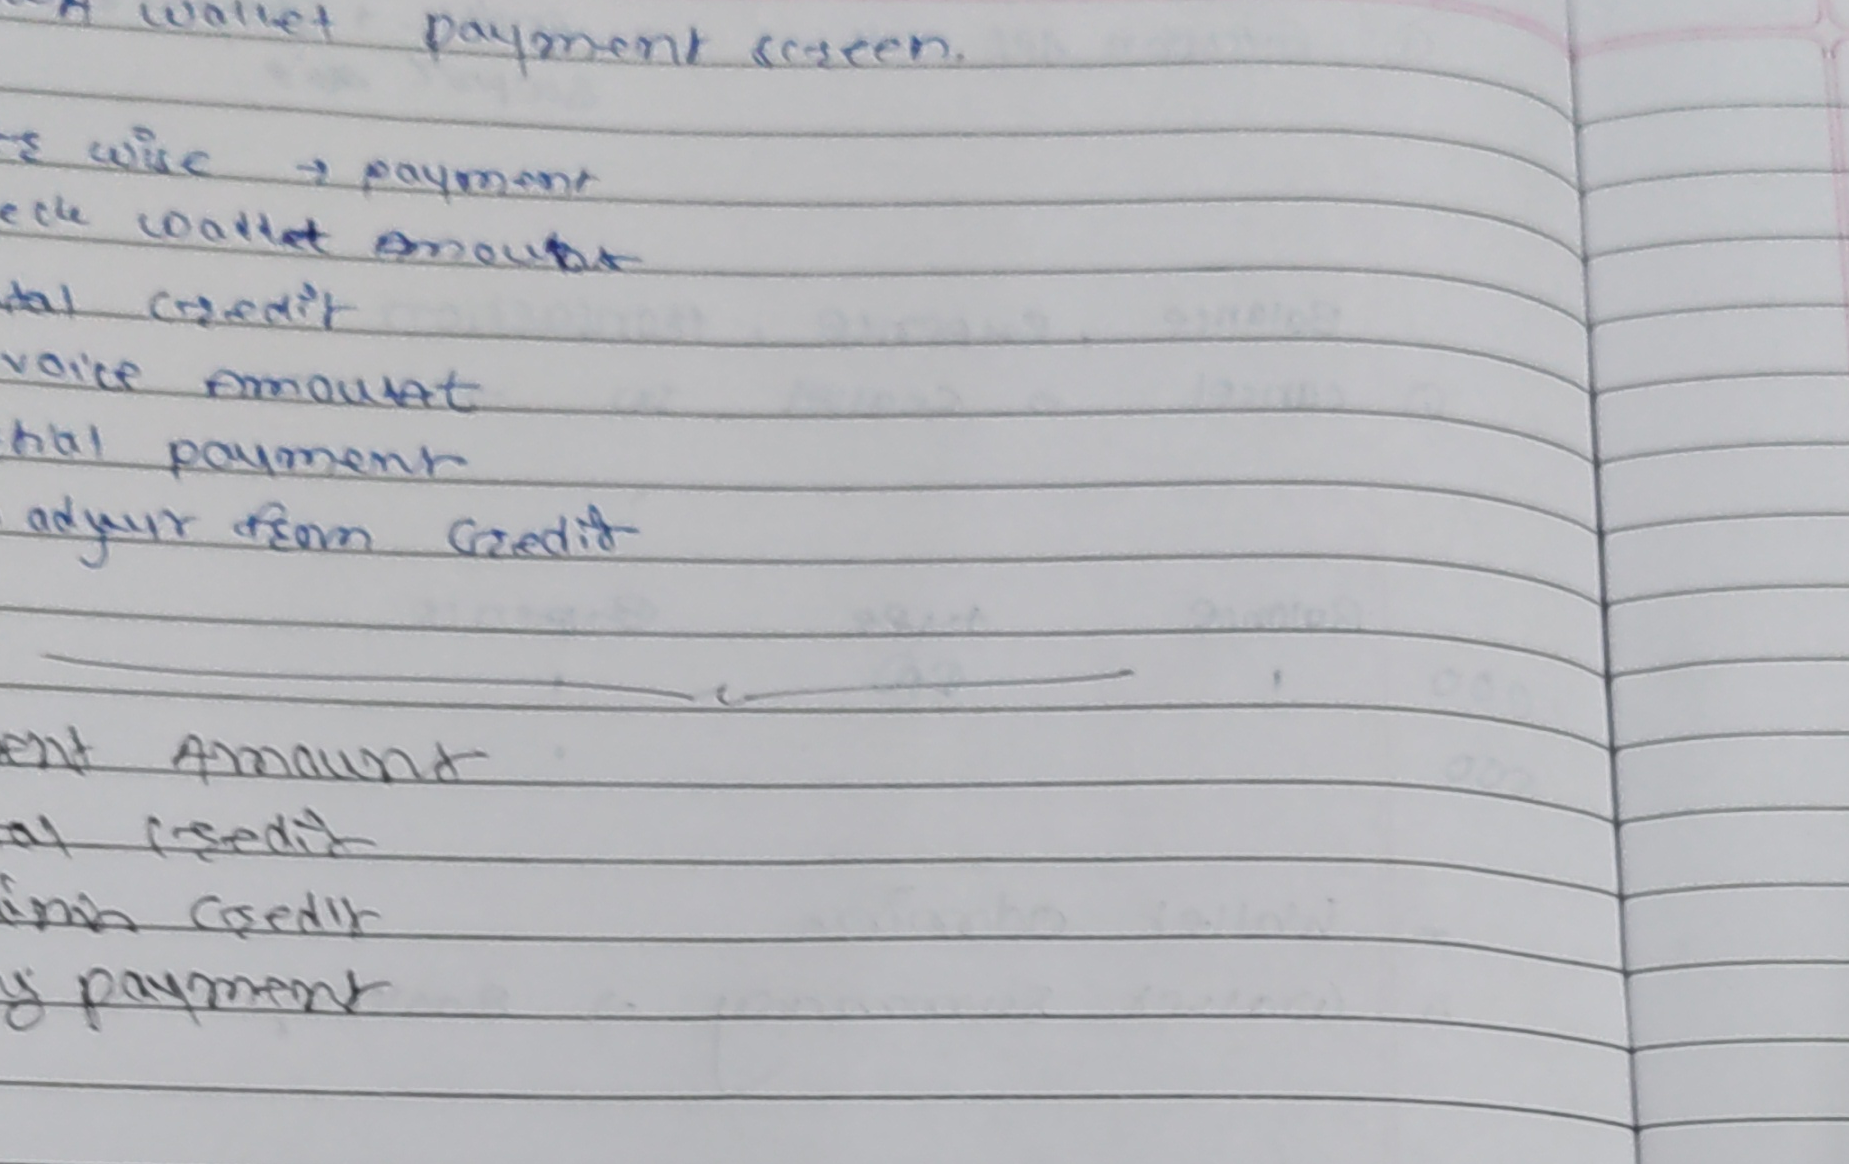 wallet payment screen.
wise → payment
wallet Amount
tal credit
voice Amount
payment
adjust from Credit
ent Amount
al credit
Credit
payment